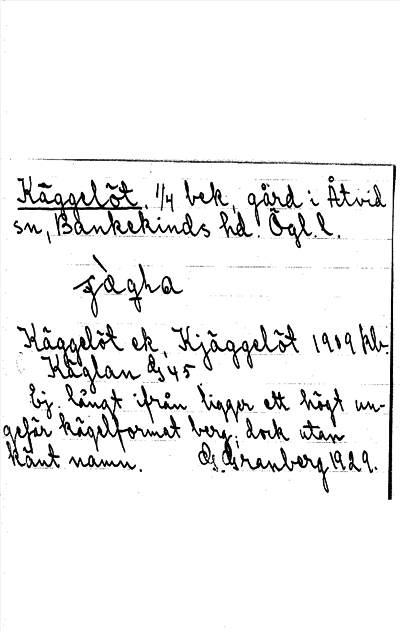 Käggelöt. 1/4 bek, gård i Åtvid
sn, Bankekinds hd. Ögl. l.
Käggelöt ek, Kjäggelöt 1909 kb.
Käglan GS 45
Ej långt ifrån ligger ett högt un-
gefär kägelformat berg; dock utan
känt namn. G. Granberg 1929.